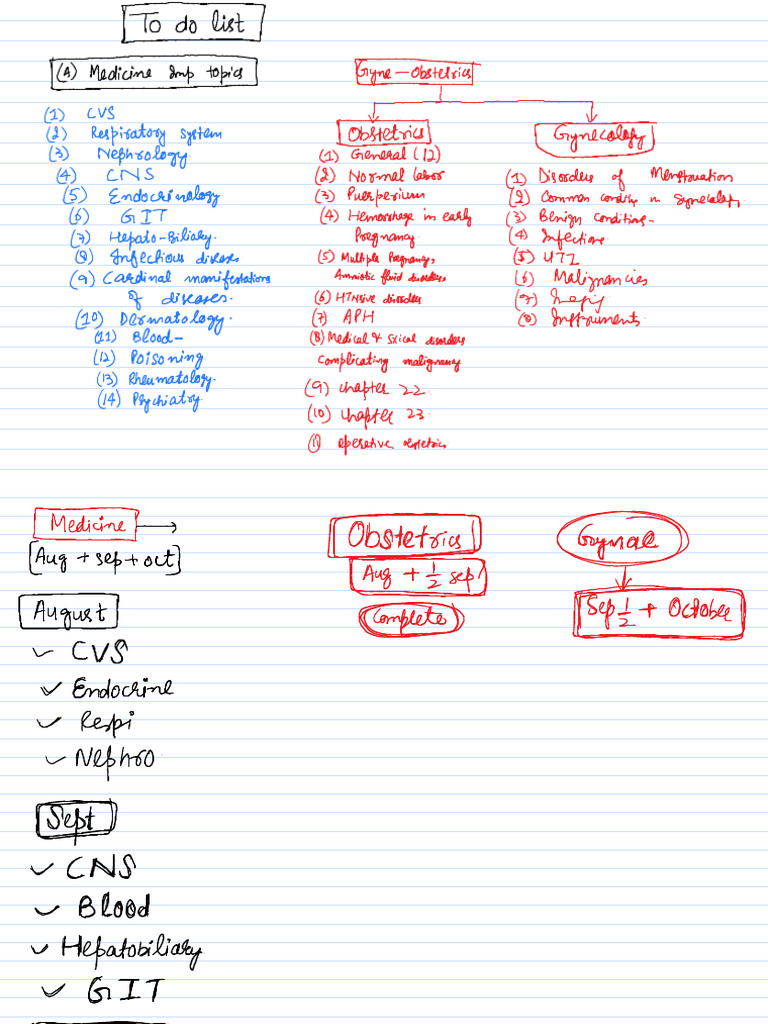 To do list
(A) Medicine Imp topics
(1) CVS
(2) Respiratory system
(3) Nephrology
(4) CNS
(5) Endocrinology
(6) GIT
(7) Hepato-Biliary
(8) Infectious diseases
(9) Cardinal manifestations
of diseases.
(10) Dermatology.
(11) Blood-
(12) Poisoning
(13) Rheumatology.
(14) Psychiatry
Gyne-Obstetrics
Obstetrics
(1) General (12)
(2) Normal labor
(3) Puerperium
(4) Hemorrhage in early
Pregnancy
(5) Multiple Pregnancy,
Amniotic fluid disorders
(6) HTNsive disorders
(7) APH
(8) Medical & Sxical disorders
complicating malignancy
(9) chapter 22
(10) chapter 23
operative obstetrics
Gynecology
(1) Disorders of Menstruation
(2) Common in Gynecology
(3) Benign conditions-
(4) Infections
(5) UTI
(6) Malignancies
(7)
(8) Instruments.
Medicine
[Aug + sep + oct]
August
CVS
Endocrine
Respi
Nephro
Sept
CNS
Blood
Hepatobiliary
GIT
Obstetrics
Aug + 1/2 sep
Complete
Gynae
Sep 1/2 + October